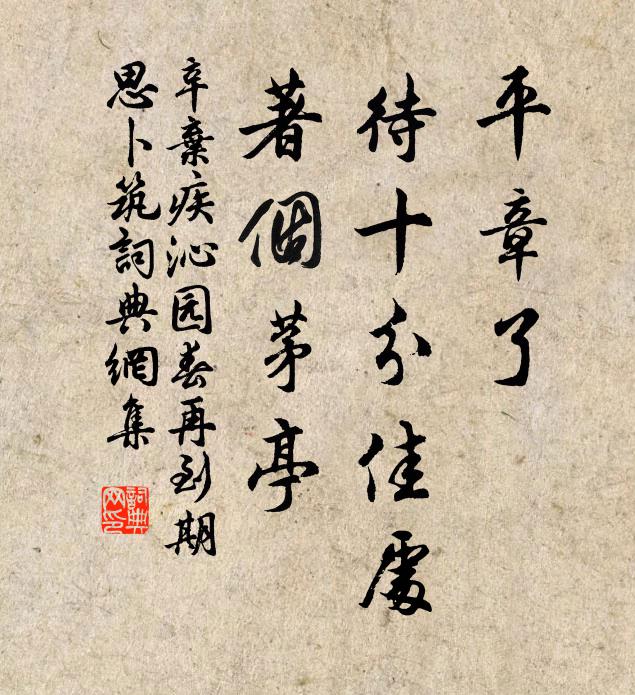 平章了
待十分佳處
著個茅亭
辛棄疾沁园春再到期
思卜筑詞典網集
詞典网印